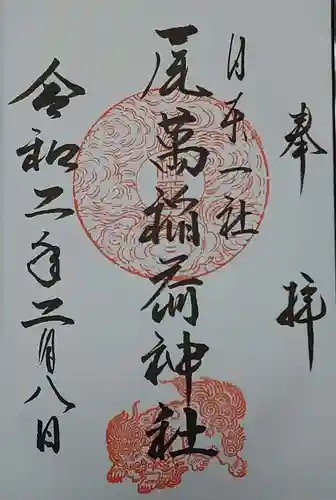 奉拝
月末一社
尾萬稲荷神社
令和二年二月八日